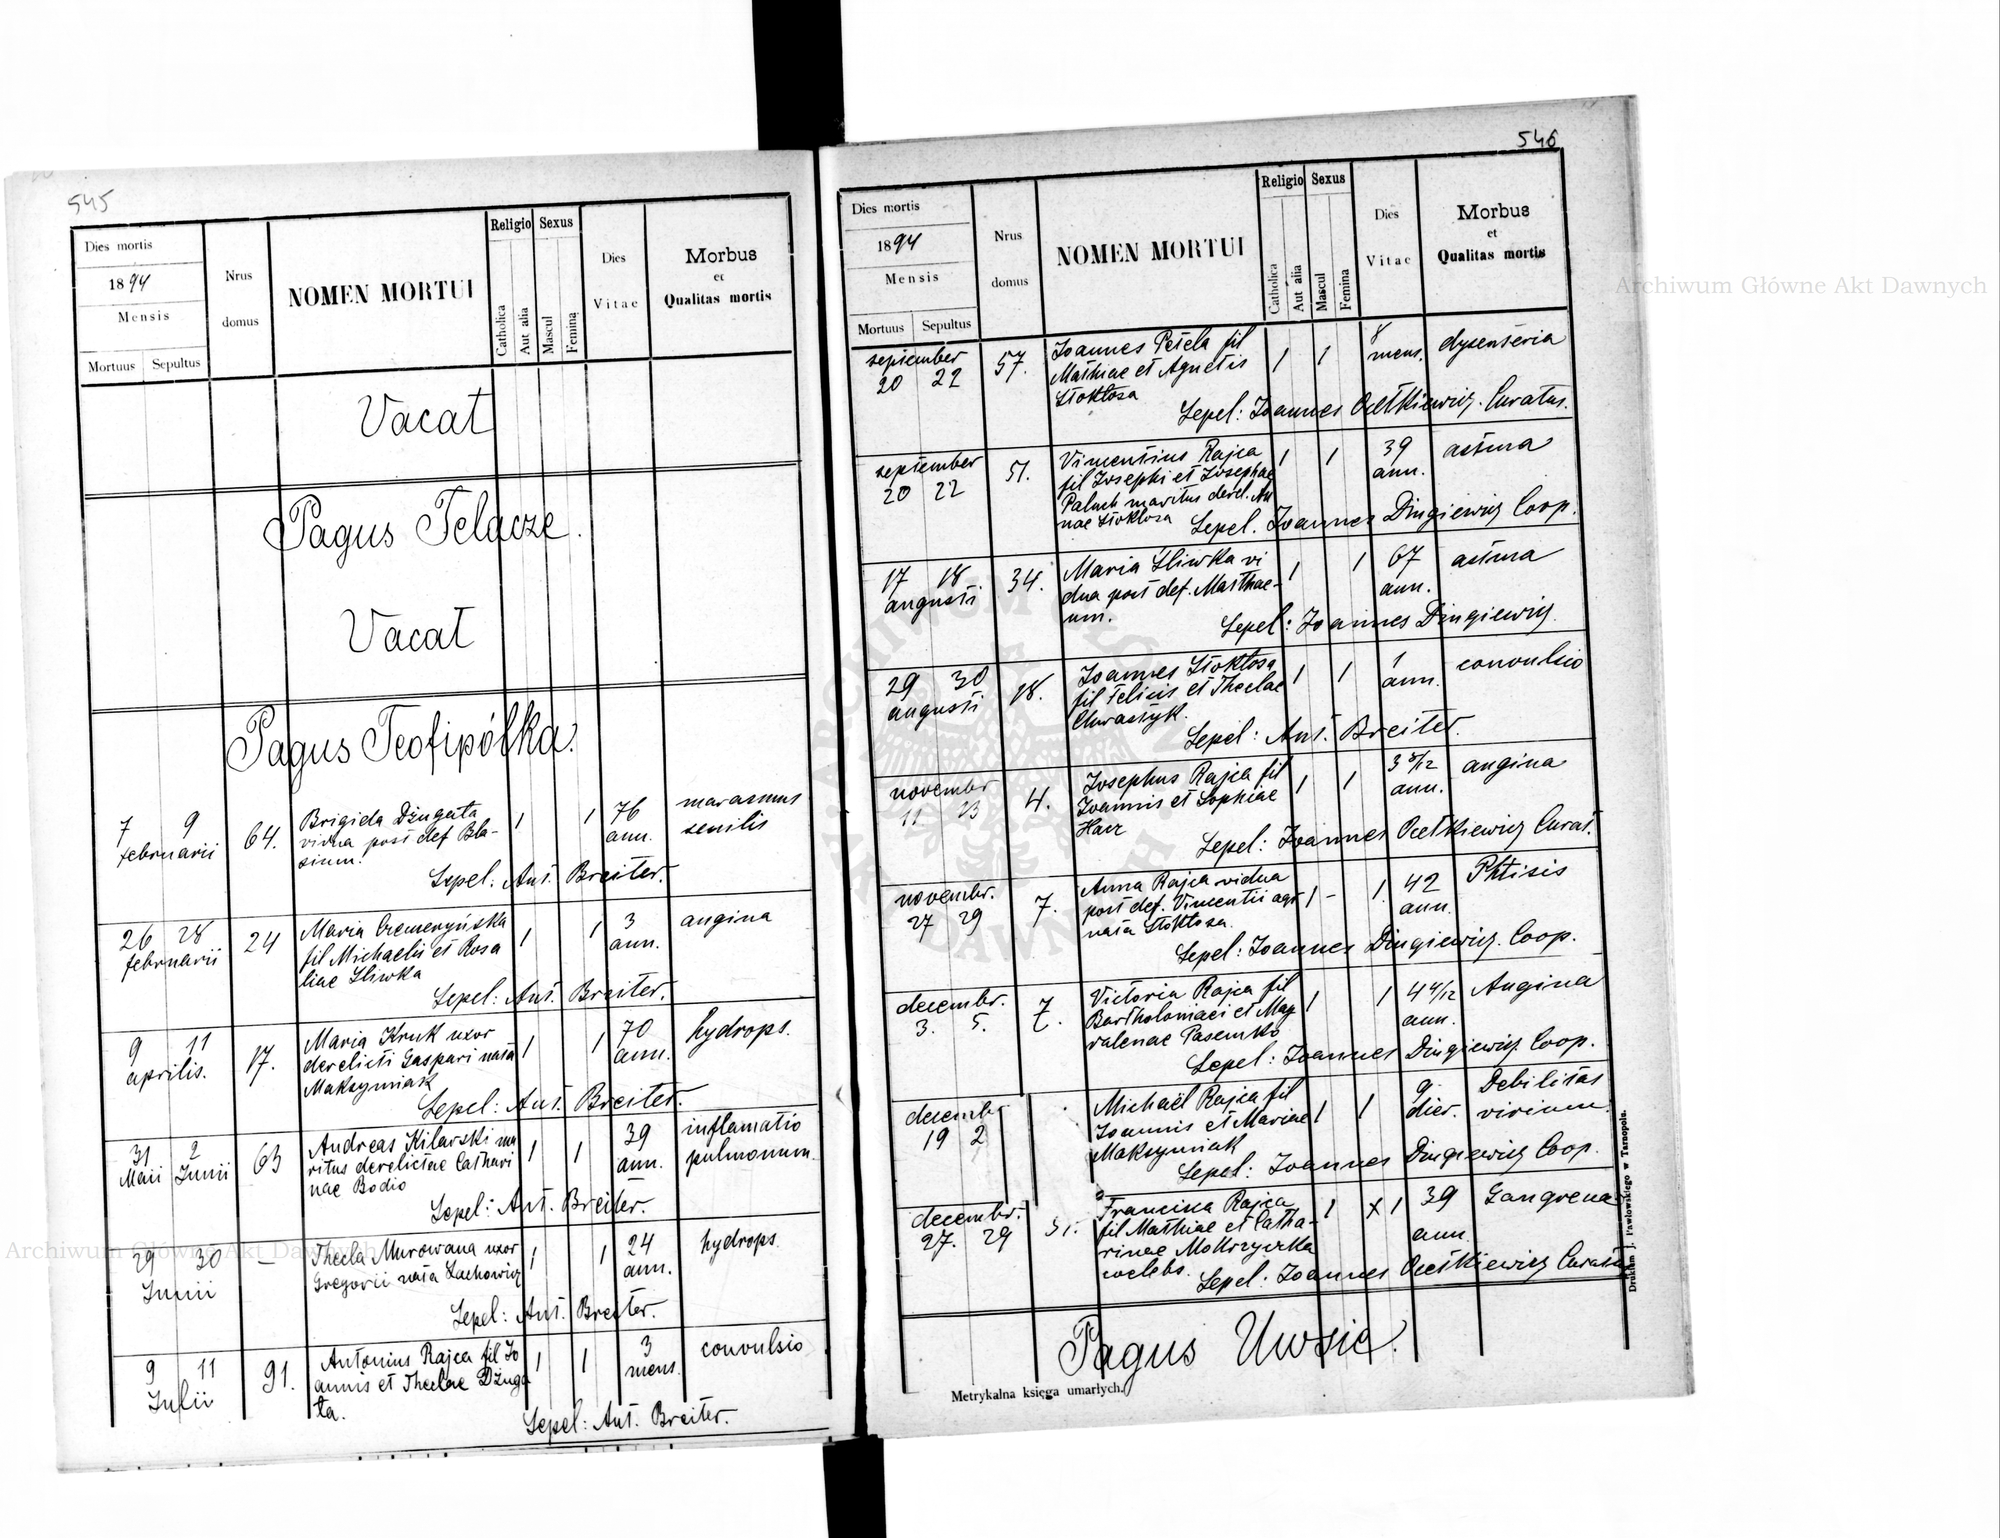 545
Dies mortis
1894
Mensis
Mortuus Sepultus
Nrus domus
NOMEN MORTUI
Religio
Catholica
Aut alia
Sexus
Mascul
Femina
Dies Vitae
Morbus
et
Qualitas mortis
Vacat
Pagus Telacze.
Vacat
Pagus Teofipólka.
7 9 64. Brigida Dżugała 1 1 76 marasmus
februarii vidua post def Bla- ann. senilis
sium.
Sepel: Ant. Breiter.
26 28 24 Maria Cremeryńska 1 1 3 angina
februarii fil Michaelis et Rosa ann.
liae Śliwka
Sepel: Ant. Breiter.
9 11 17. Maria Kruk uxor 1 1 70 hydrops.
aprilis. derelicti Gaspari nata ann.
Maksymiak
Sepel: Ant. Breiter.
31 2 63 Andreas Kilarski ma 1 1 39 inflamatio
Maii Junii ritus derelictae Cathari ann. pulmonum.
nae Bodio
Sepel: Ant. Breiter.
29 30 — Thecla Murowana uxor 1 1 24 hydrops
Junii Gregorii nata Lachowicz ann.
Sepel: Ant. Breiter.
9 11 91. Antonius Rajca fil Jo 1 1 3 convulsio
Julii annis et Theclae Dżuga mens.
ła.
Sepel: Ant. Breiter.
546
Dies mortis
1894
Mensis
Mortuus Sepultus
Nrus domus
NOMEN MORTUI
Religio
Catholica
Aut alia
Sexus
Mascul
Femina
Dies Vitae
Morbus
et
Qualitas mortis
september 57. Joannes Petela fil 1 1 8 dysenteria
20 22 Mathiae et Agnetis mens.
Stokłosa
Sepel: Joannes Ocetkiewicz. Curatus.
september 51. Vincentius Rajca 1 1 39 astma
20 22 fil Josephi et Josephae ann.
Paluch maritus derel. An
nae Stokłosa Sepel. Joannes Dzingiewicz Coop.
17 18 34. Maria Śliwka vi 1 1 67 astma
augusti dua post def. Matthae- ann.
um.
Sepel: Joannes Dzingiewicz.
29 30 18. Joannes Stokłosa 1 1 1 convulsio
augusti fil Felicis et Theclae ann.
Chwastyk.
Sepel: Ant. Breiter.
novembr 4. Josephus Rajca fil 1 1 3 8/12 angina
11 13 Joannis et Sophiae ann.
Harz
Sepel: Joannes Ocetkiewicz Curat.
novembr. 7. Anna Rajca vidua 1 - 1. 42 Phtisis
27 29 post def. Vincentii agr ann.
nata Stokłosa.
Sepel: Joannes Dzingiewicz. Coop.
decembr. 7. Victoria Rajca fil 1 1 4 4/12 Angina
3. 5. Bartholomaei et Mag ann.
dalenae Pasemko
Sepel: Joannes Dzingiewicz. Coop.
decembr Michaël Rajca fil 1 1 9 Debilitas
19 2 Joannis et Mariae dier. virium.
Maksymiak
Sepel: Joannes Dzingiewicz Coop.
decembr. 51. Francisca Rajca 1 X 1 39 Gangrena
27. 29 fil Mathiae et Catha- ann.
rinae Mokrzycka
coelebs. Sepel: Joannes Ocetkiewicz Curatus
Pagus Uwsie.
Metrykalna księga umarłych.
Drukiem J. Pawłowskiego w Tarnopolu.
Archiwum Główne Akt Dawnych
Archiwum Główne Akt Dawnych